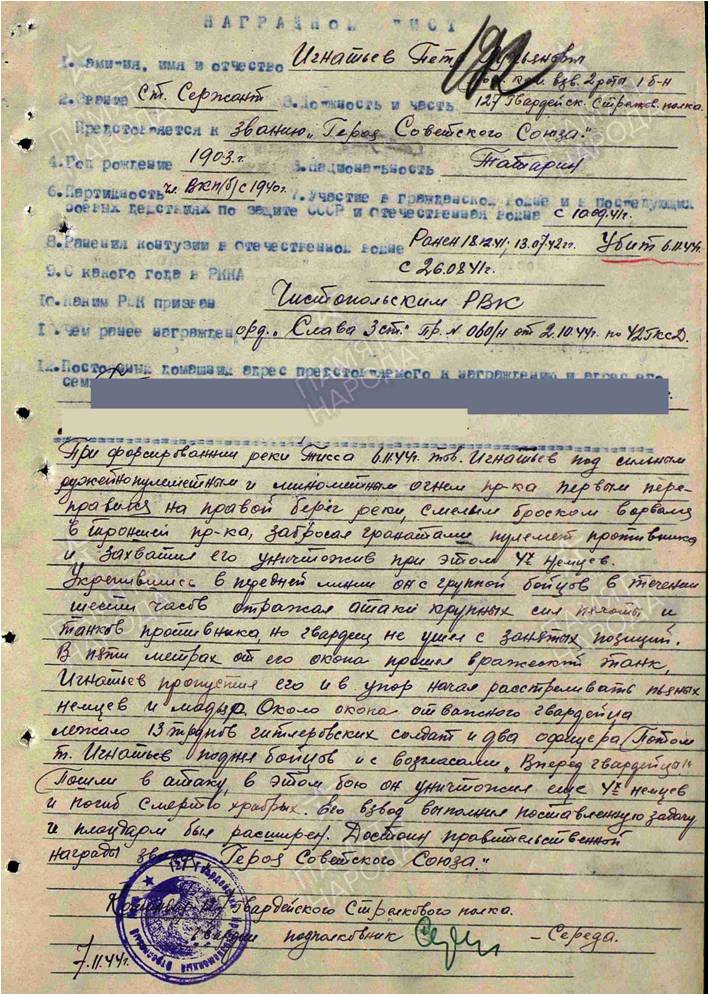 НАГРАДНОЙ ЛИСТ
1. Фамилия, имя и отчество Игнатьев Петр
ком взв. 2 роты 1 б-н
2. Звание Ст. Сержант 3. Должность и часть 127 Гвардейск. Стрелков. полка.
Представляется к званию „Героя Советского Союза."
4. Год рождение 1903 г. 5. Национальность Татарин
6. Партийность чл. ВКП(б) с 1940 г. 7. Участие в гражданской войне и в последующих
боевых действиях по защите СССР и отечественной войне с 10.09.41 г.
8. Ранения контузии в отечественной войне Ранен 13.07.42 г. Убит 6.11.44 г.
9. С какого года в РККА с 26.08.41 г.
10. Каким РВК призван Чистопольским РВК
11. Чем ранее награжден орд. „Слава 3 ст." Пр. № 060/н от 2.10.44 г. по 42 ГКСД.
12. Постоянный домашний адрес представляемого к награждению и адрес его
сем
При форсировании реки Тисса 6.11.44 г. тов. Игнатьев под сильным
ружейно пулеметным и минометным огнем пр-ка первым пере-
правился на правый берег реки, смелым броском ворвался
в траншеи пр-ка, забросал гранатами пулемет противника
и захватил его уничтожив при этом 4х немцев.
Укрепившись в передней линии он с группой бойцов в течении
шести часов отражал атаки крупных сил пехоты и
танков противника, но гвардеец не ушел с занятых позиций.
В пяти метрах от его окопа прошел вражеский танк,
Игнатьев пропустил его и в упор начал расстреливать пьяных
немцев и мадьяр. Около окопа отважного гвардейца
лежало 13 трупов гитлеровских солдат и два офицера. Потом
т. Игнатьев поднял бойцов и с возгласами „Вперед гвардейцы"
Пошли в атаку, в этом бою он уничтожил еще 4х немцев
и погиб смертью храбрых. Его взвод выполнил поставленную задачу
и плацдарм был расширен. Достоин правительственной
награды „Героя Советского Союза."
гвардейского Стрелкового полка.
гвардии подполковник – Середа.
7.11.44 г.
ПАМЯТЬ
НАРОДА